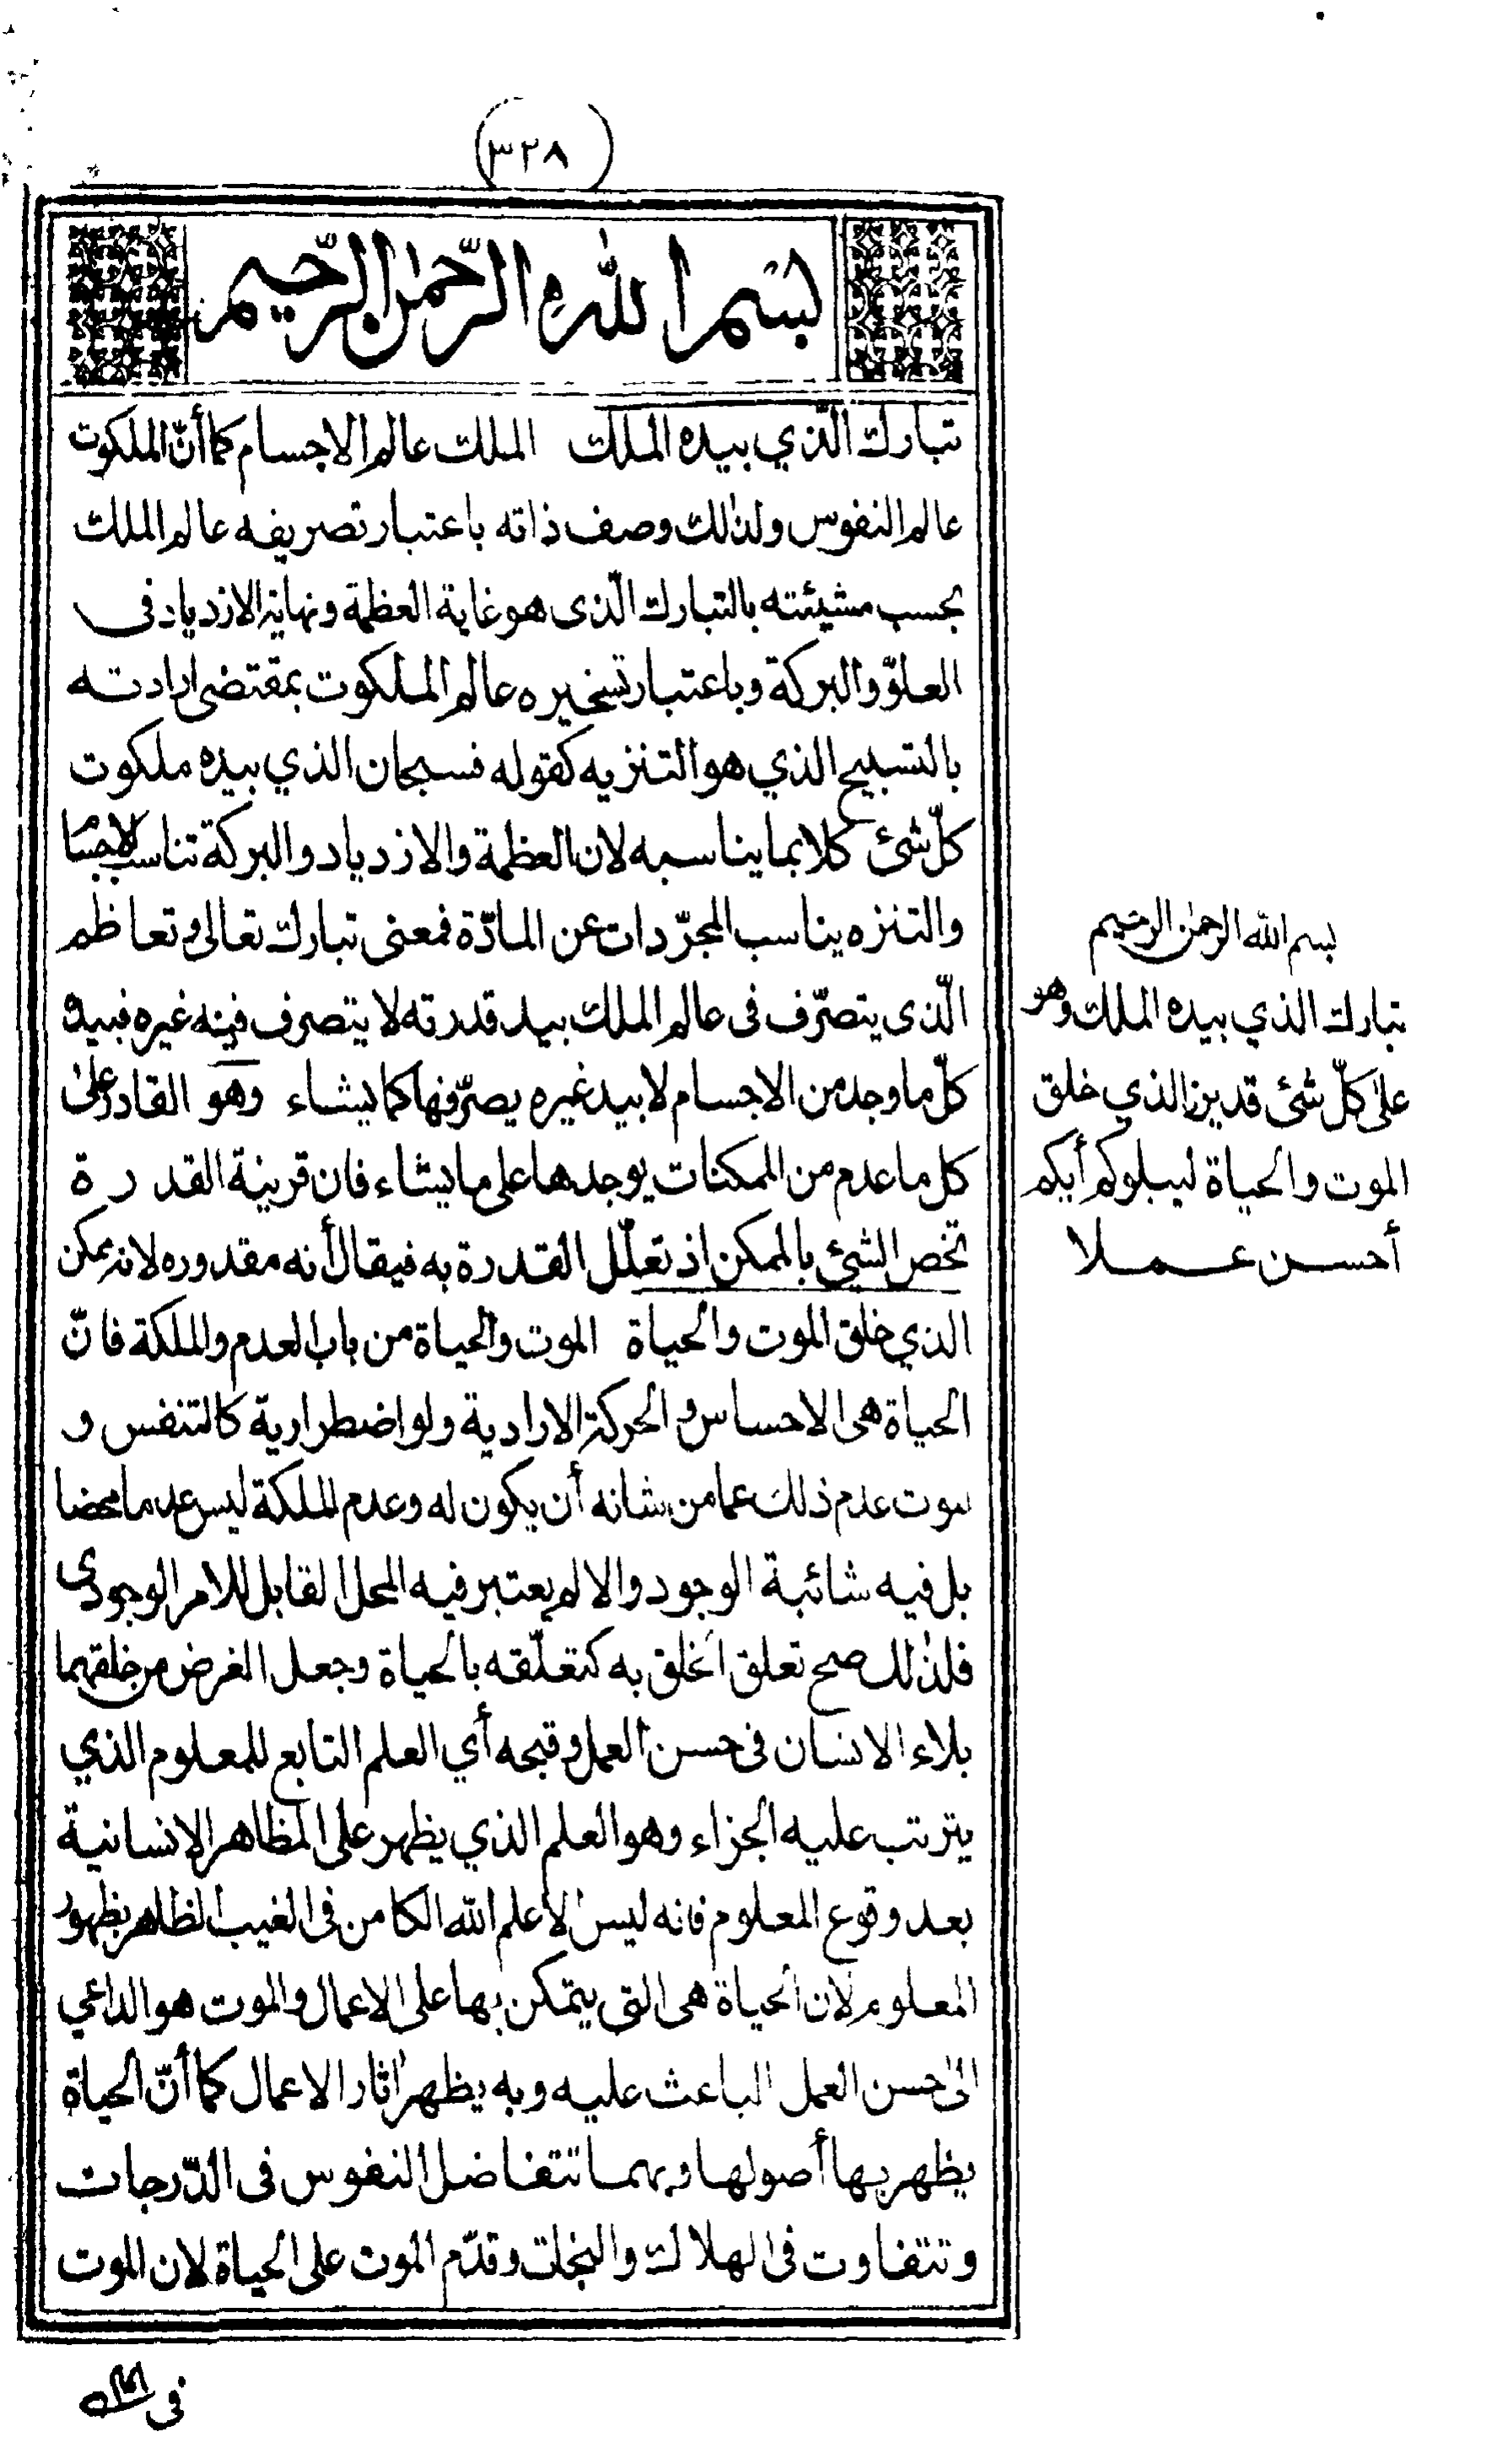 (٣٢٨)
بسم الله الرّحمٰن الرّحيم
تبارك الّذي بيده الملك الملك عالم الاجسام كما أنّ الملكوت
عالم النفوس ولذٰلك وصف ذاته باعتبار تصريفه عالم الملك
بحسب مشيئته بالتبارك الّذى هو غاية العظمة ونهاية الازدياد فى
العلوّ والبركة وباعتبار تسخيره عالم الملكوت بمقتضى ارادته
بالتسبيح الذي هو التنزيه كقوله فسبحان الذي بيده ملكوت
كلّ شئ كلا بما يناسبه لان العظمة والازدياد والبركة تناسب الاجسام
والتنزه يناسب المجرّدات عن المادّة فمعنى تبارك تعالى وتعاظم
الّذى يتصرّف فى عالم الملك بيد قدرته لا يتصرف فيه غيره فبيده
كلّ ما وجد من الاجسام لا بيد غيره يصرّفها كما يشاء وهو القادر على
كل ما عدم من الممكنات يوجدها على ما يشاء فان قرينة القدرة
تخص الشئ بالممكن اذ تعلّل القدرة به فيقال أنه مقدوره لانه ممكن
الذي خلق الموت والحياة الموت والحياة من باب العدم والملكة فانّ
الحياة هى الاحساس والحركة الارادية ولو اضطرارية كالتنفس و
لموت عدم ذلك عما من شانه أن يكون له وعدم الملكة ليس عدما محضا
بل فيه شائبة الوجود والا لم يعتبر فيه المحل القابل للامر الوجودى
فلذٰلك صح تعلق الخلق به كتعلّقه بالحياة وجعل الغرض من خلقهما
بلاء الانسان فى حسن العمل وقبحه أي العلم التابع للمعلوم الذي
يترتب عليه الجزاء وهو العلم الذي يظهر على المظاهر الانسانية
بعد وقوع المعلوم فانه ليس الا علم الله الكامن فى الغيب الظاهر بظهور
المعلوم لان الحياة هى التى يتمكن بها على الاعمال والموت هو الداعي
الى حسن العمل الباعث عليه وبه يظهر اٰثار الاعمال كما أنّ الحياة
يظهر بها أصولها وبهما تتفاضل النفوس فى الدّرجات
وتتفاوت فى الهلاك والنجات وقدّم الموت على الحياة لان الموت
بسم الله الرحمٰن الرحيم
تبارك الذي بيده الملك وهو
علىٰ كلّ شئ قدير الذي خلق
الموت والحياة ليبلوكم أيكم
أحسن عملا
فى